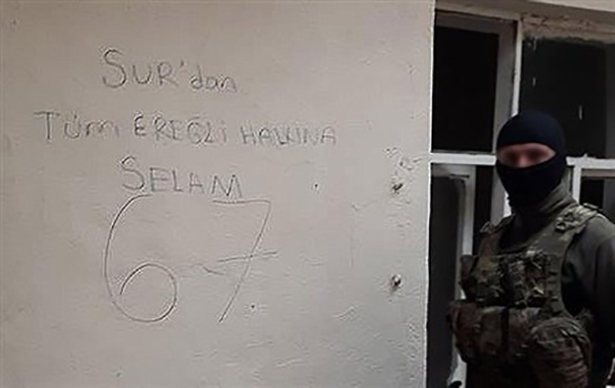 SUR'dan
Tüm EREĞLİ HALKINA
SELAM
67